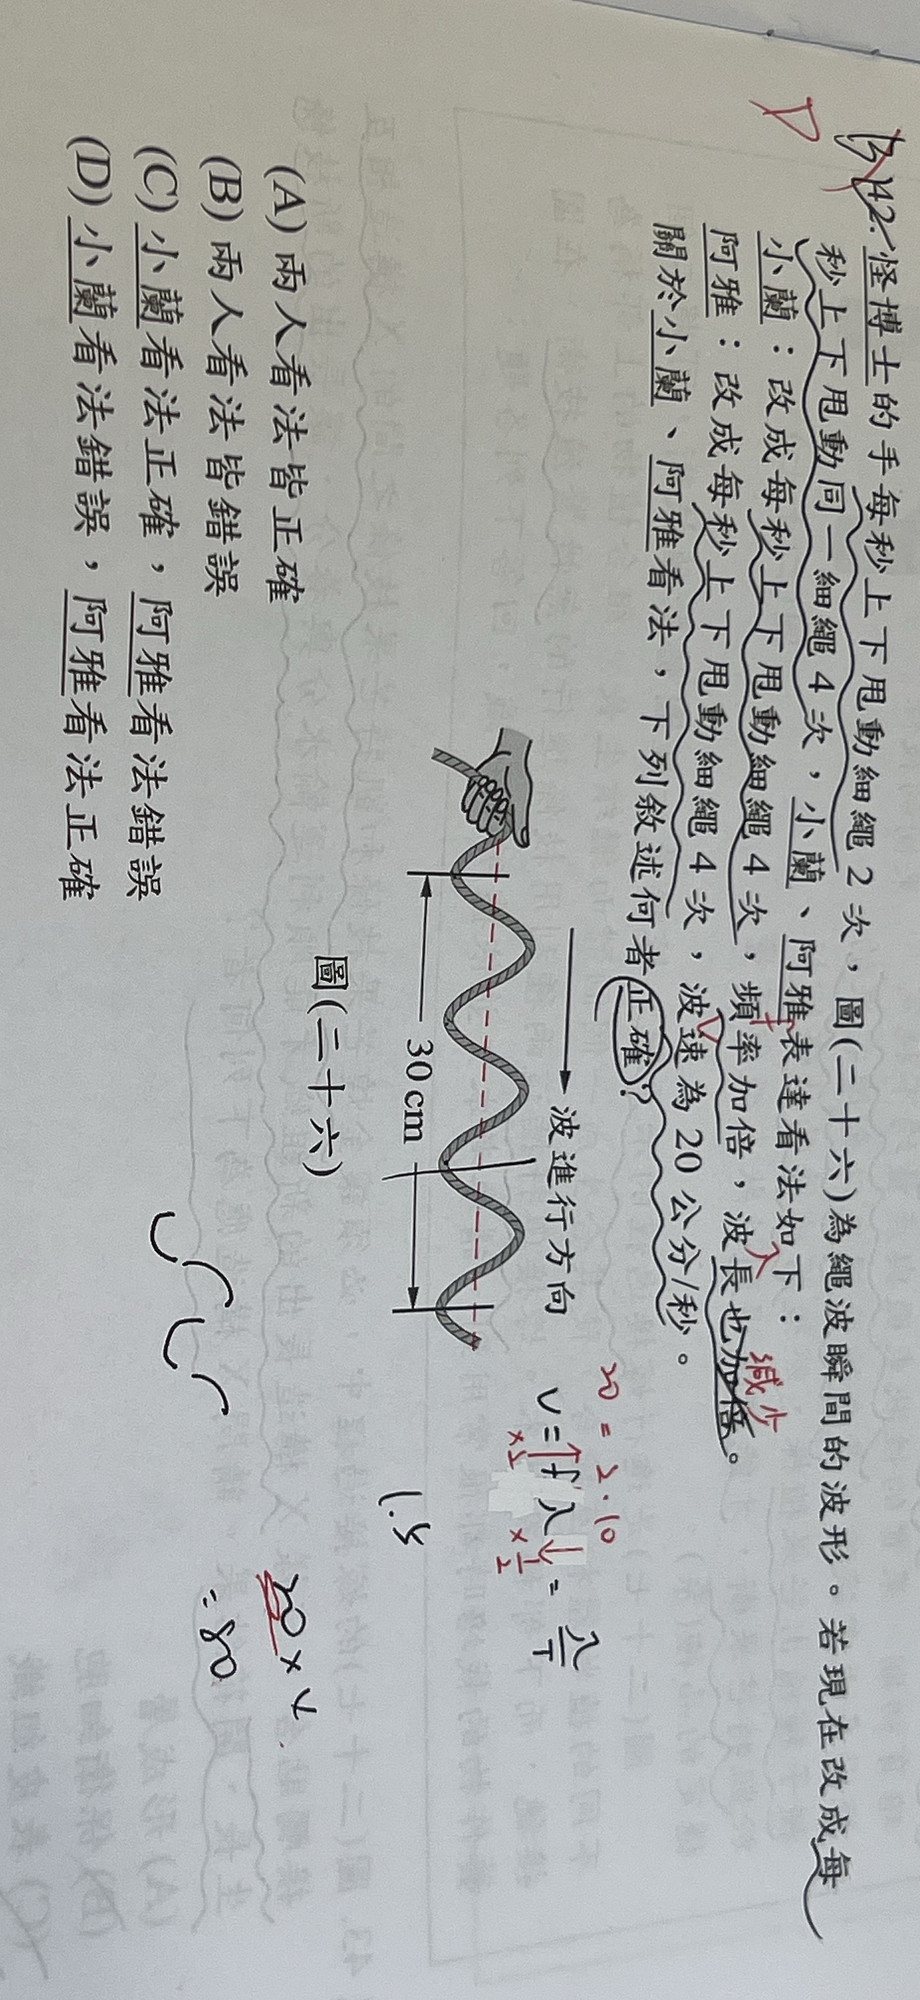 D
B 42. 怪博士的手每秒上下甩動細繩 2 次，圖(二十六)為繩波瞬間的波形。若現在改成每
秒上下甩動同一細繩 4 次，小蘭、阿雅表達看法如下：
小蘭：改成每秒上下甩動細繩 4 次，頻率加倍，波長也加倍。
減少
阿雅：改成每秒上下甩動細繩 4 次，波速為 20 公分/秒。
關於小蘭、阿雅看法，下列敘述何者正確？
20 = 2．10
波進行方向
v = f λ = λ/T
×2 ×1/2
30 cm
1.5
圖(二十六)
(A) 兩人看法皆正確
(B) 兩人看法皆錯誤
(C) 小蘭看法正確，阿雅看法錯誤
(D) 小蘭看法錯誤，阿雅看法正確
20 × 4
= 80